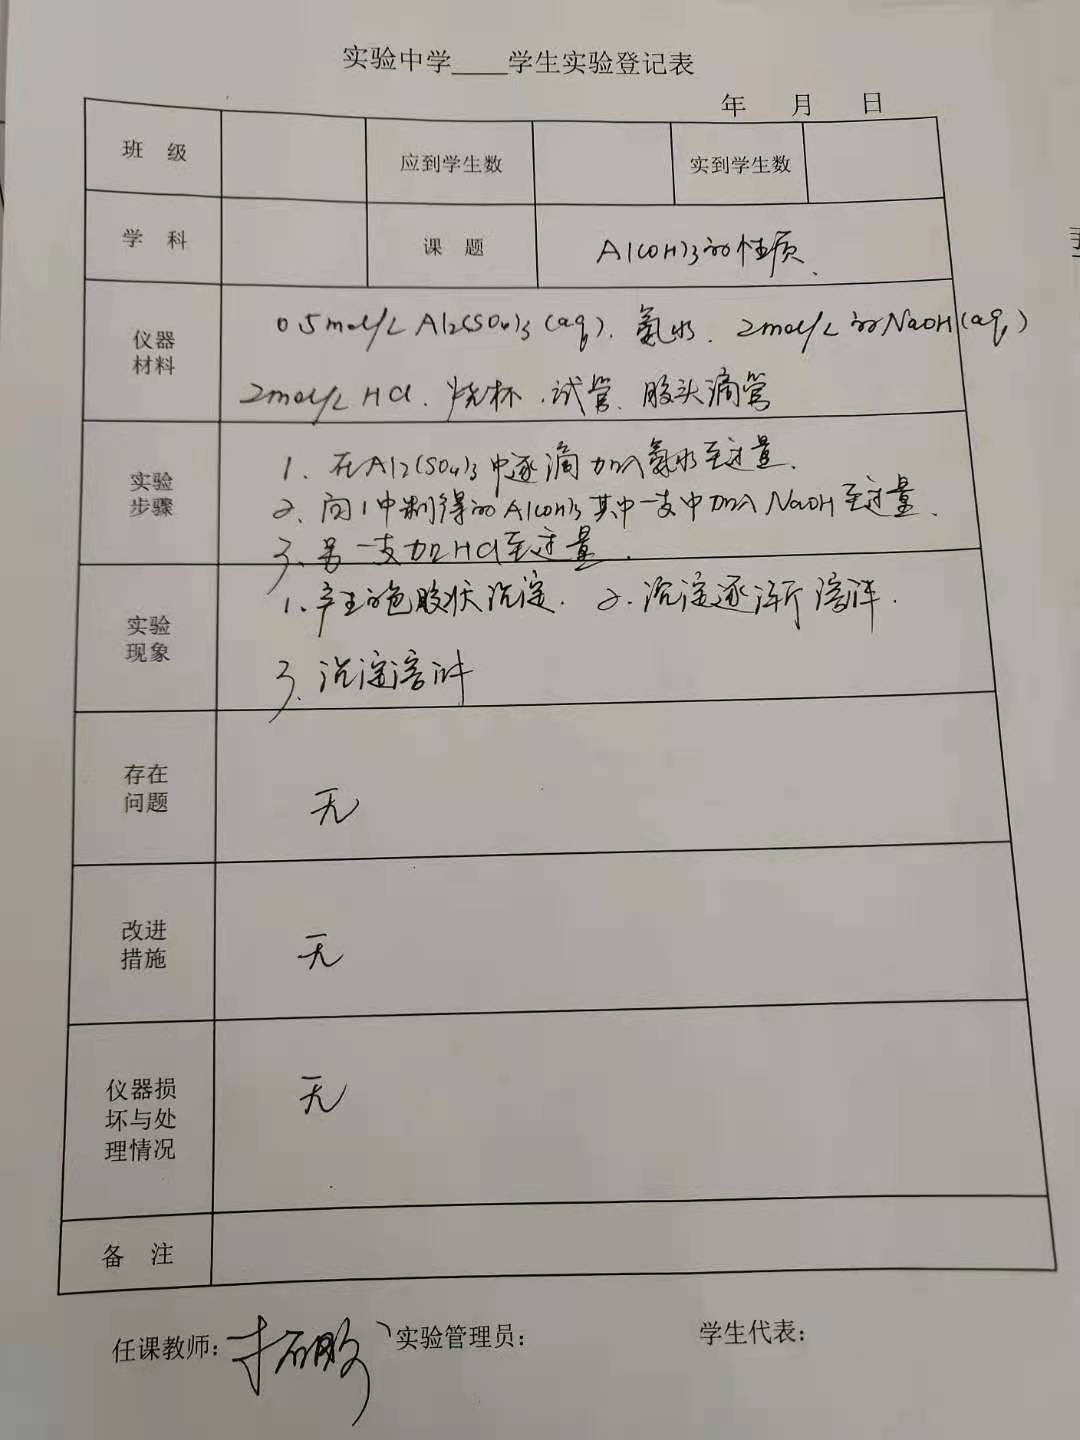 实验中学____学生实验登记表
年 月 日
班 级 应到学生数 实到学生数
学 科 课 题 Al(OH)3的性质.
仪器
材料
0.5mol/L Al2(SO4)3(aq). 氨水. 2mol/L的NaOH(aq)
2mol/L HCl. 烧杯.试管.胶头滴管
实验
步骤
1. 在Al2(SO4)3中逐滴加入氨水至过量.
2. 向1中制得的Al(OH)3其中一支中加入NaOH至过量.
3. 另一支加HCl至过量.
实验
现象
1. 产生白色胶状沉淀. 2. 沉淀逐渐溶洋.
3. 沉淀溶
存在
问题
无
改进
措施
无
仪器损
坏与处
理情况
无
备 注
任课教师: 实验管理员: 学生代表: